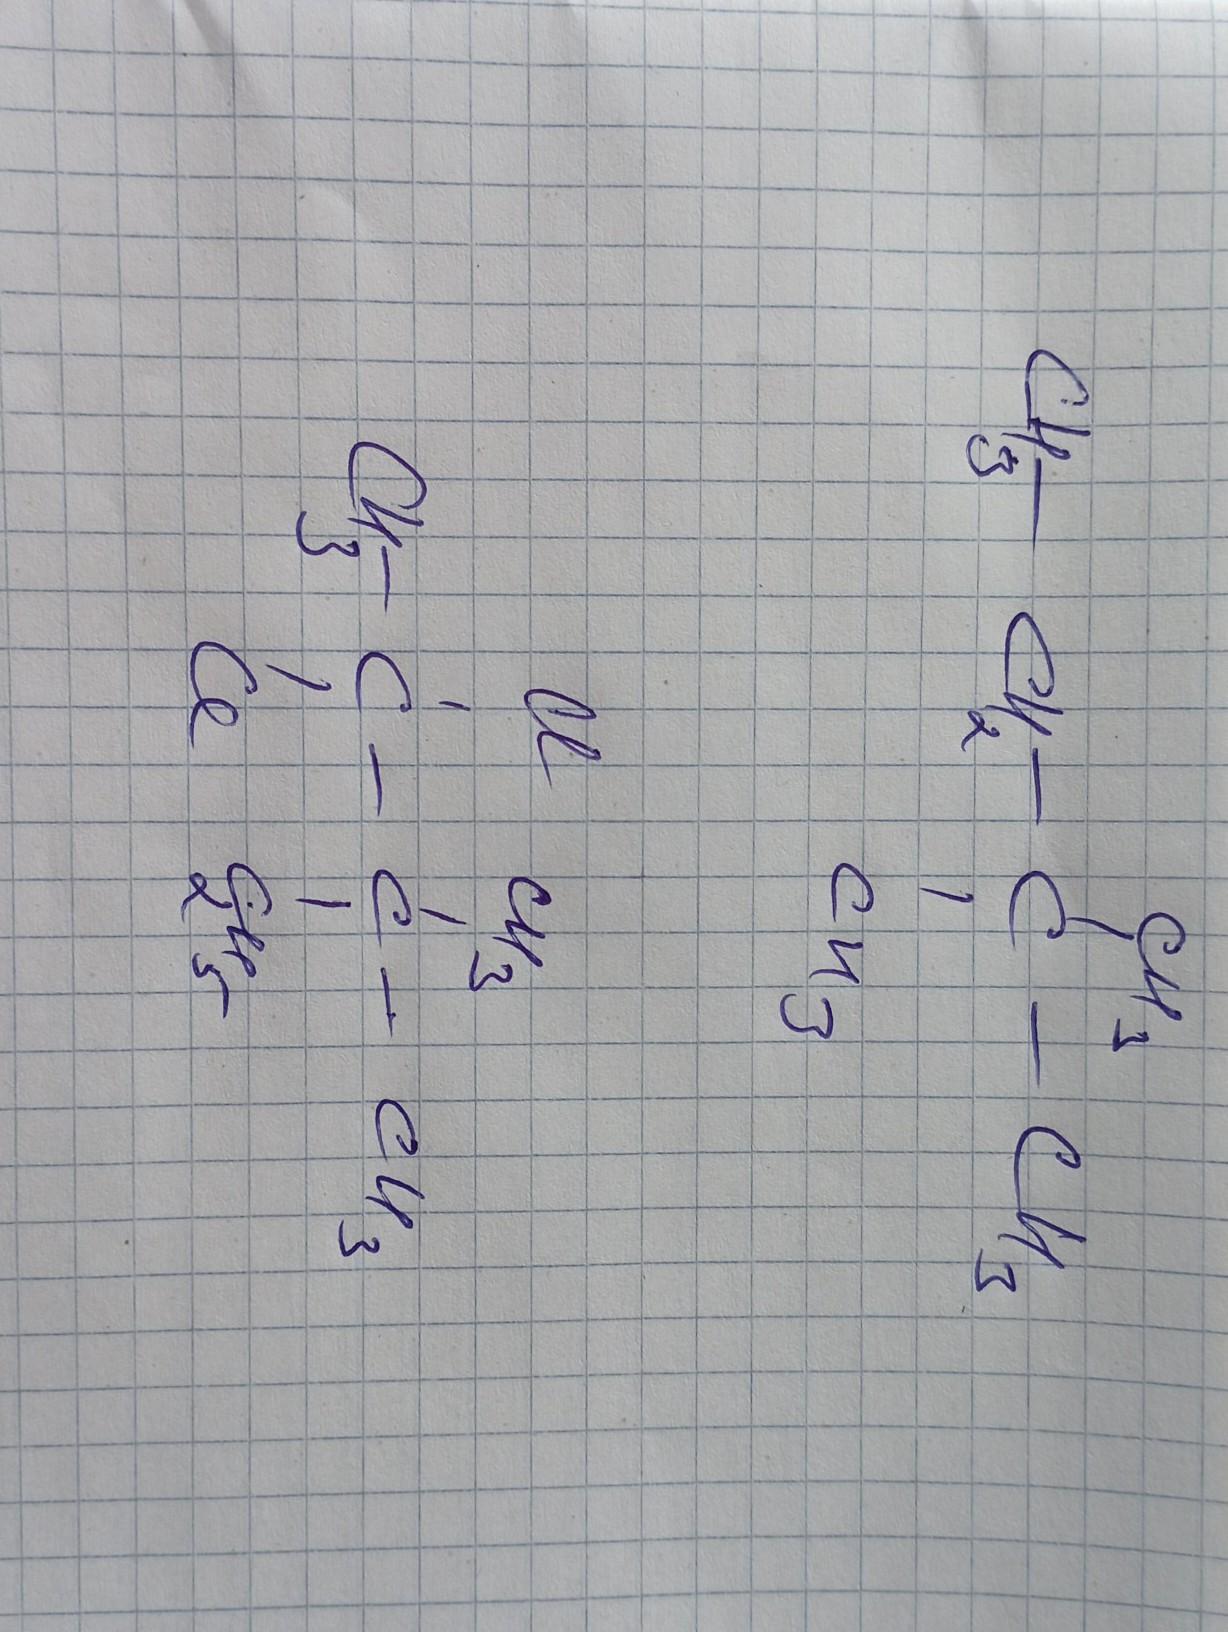 CH3
CH3 — CH2 — C — CH3
CH3
Cl CH3
CH3 — C — C — CH3
Cl C2H5